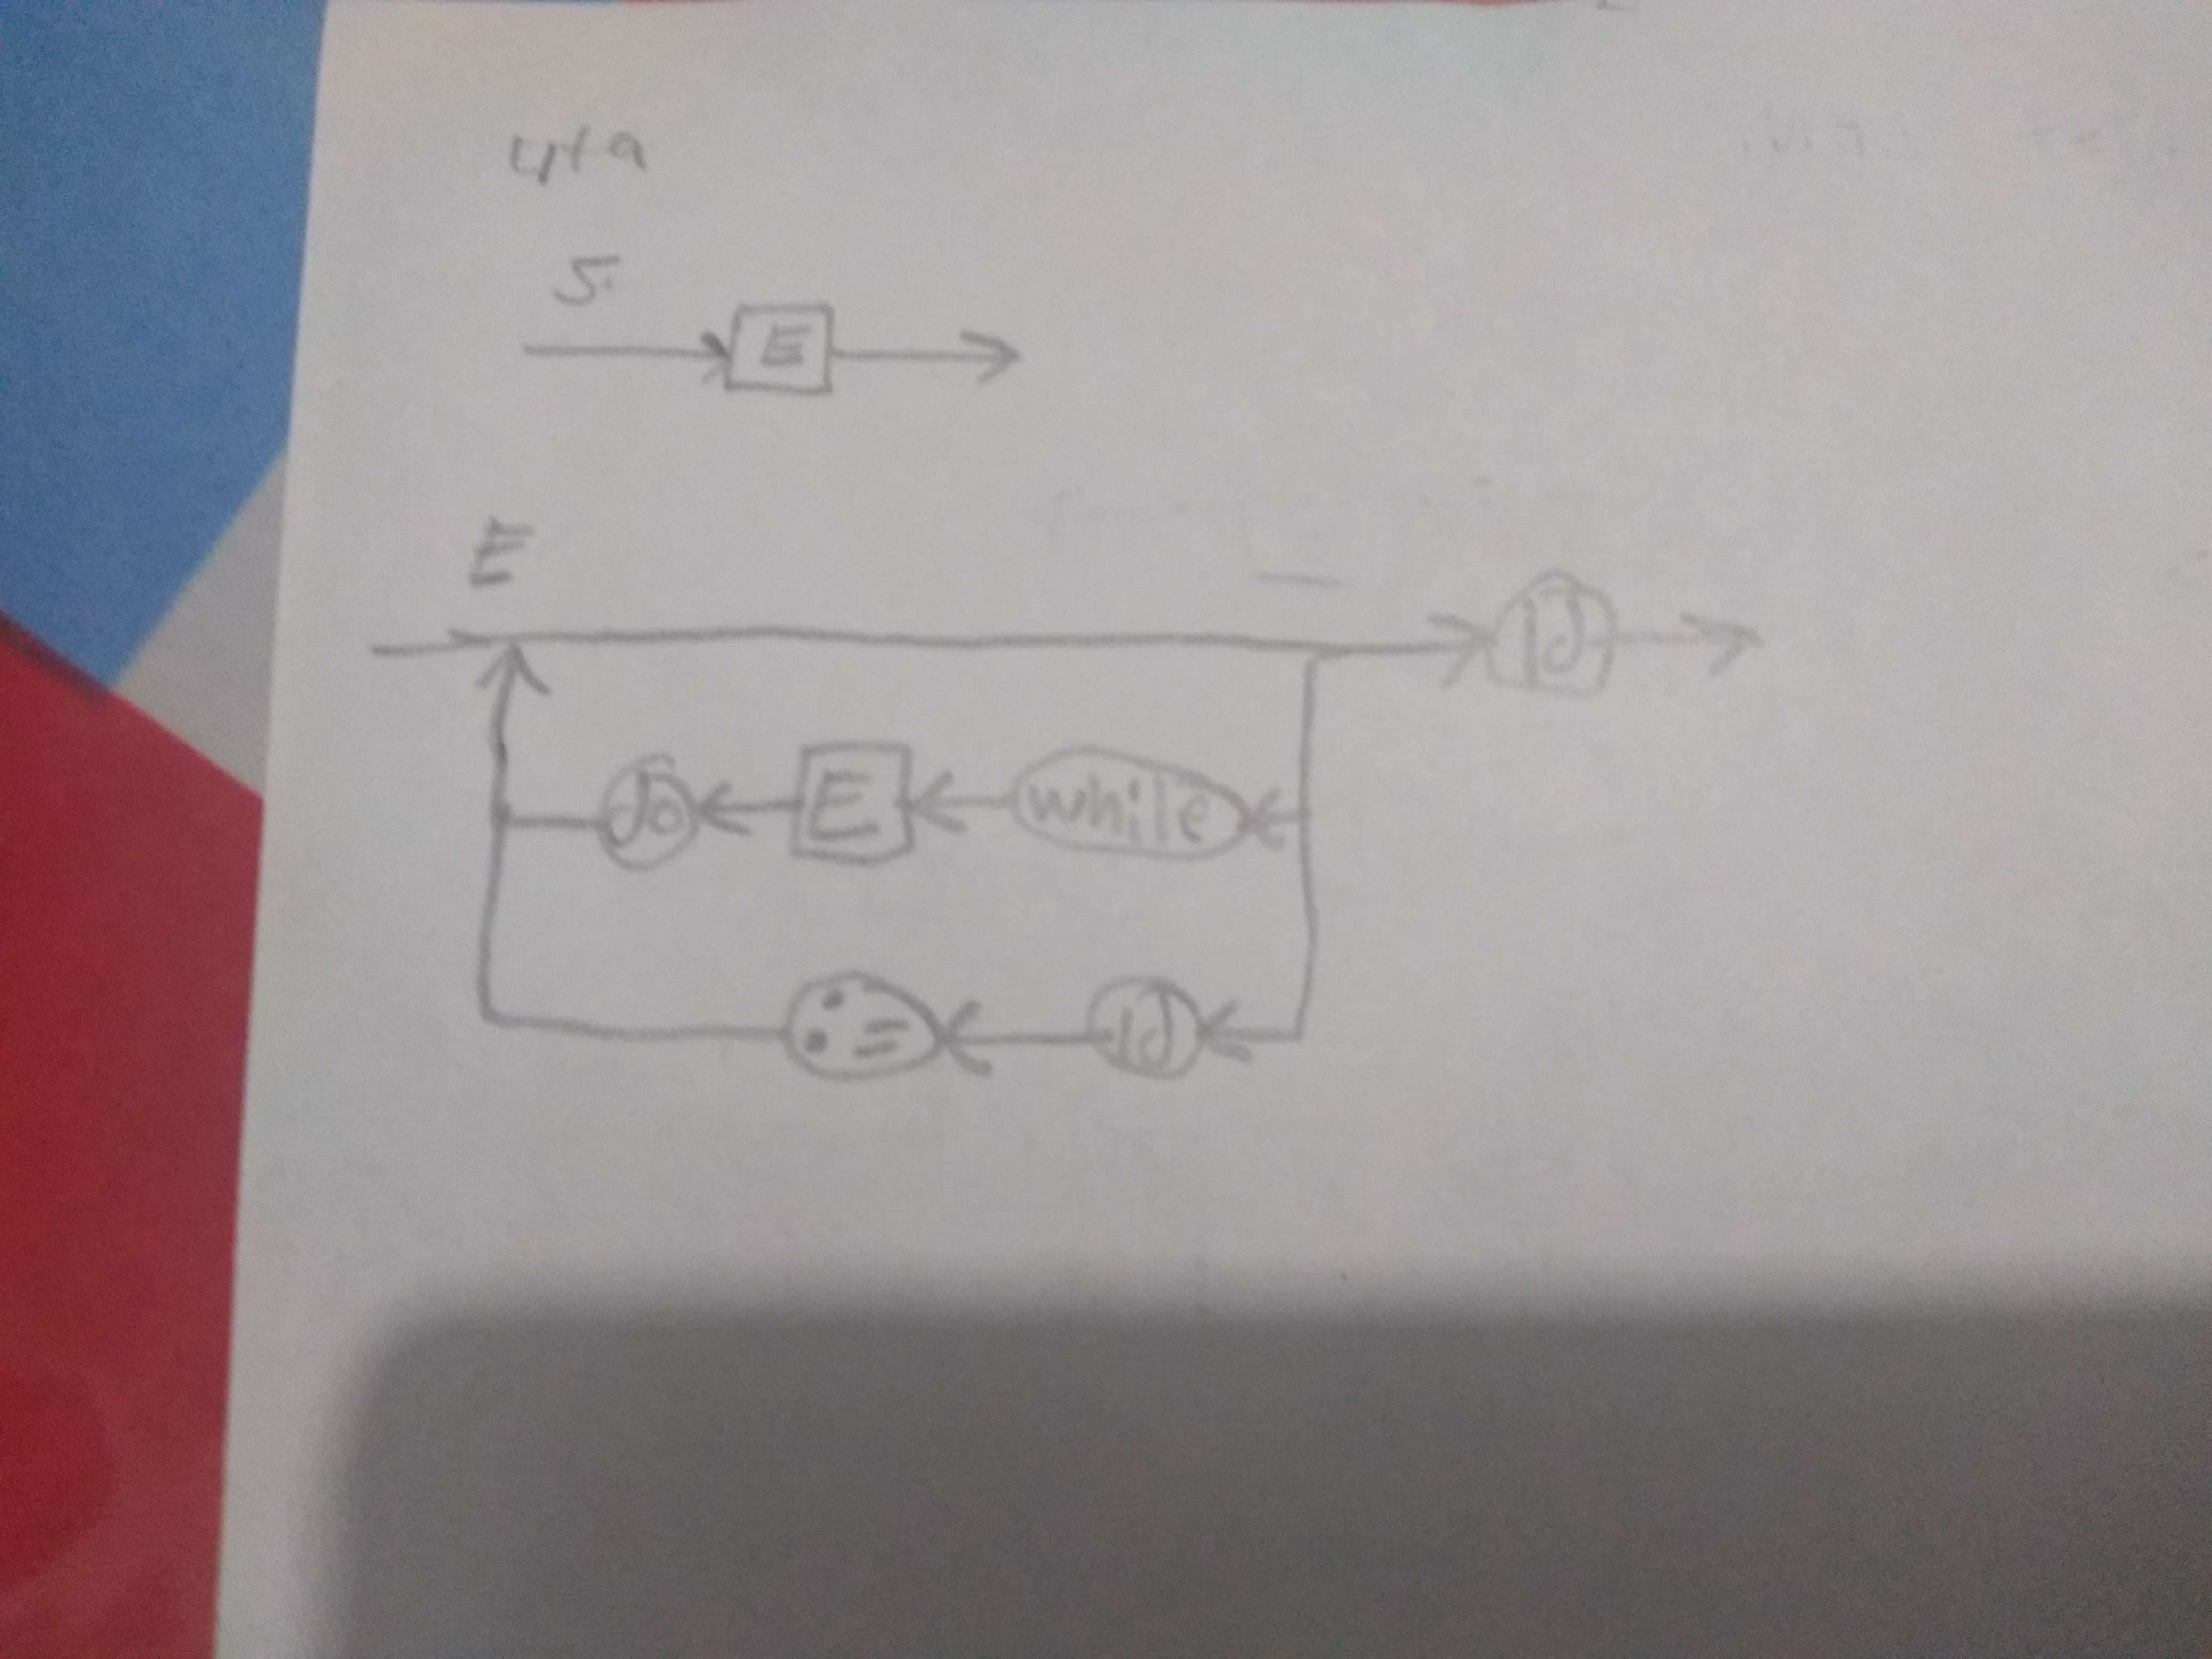 4ta
S.
E
E
Id
do E while
:= id